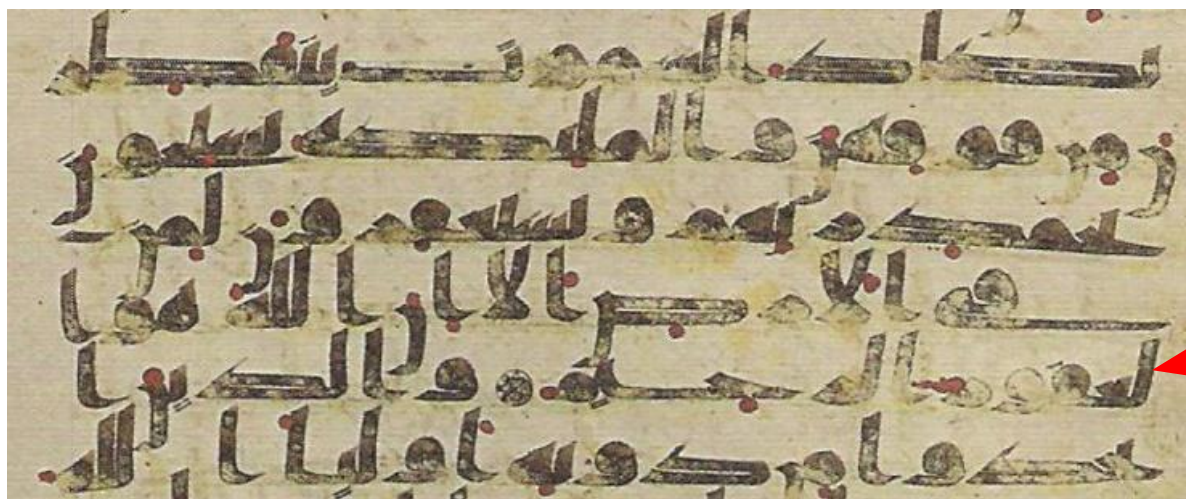 تكاد السموت يتفطر
ن من فوقهن والملئكة يسبحون
بحمد ربهم ويستغفرون لمن
في الارض الا ان الله هو ا
لغفور الرحيم والذين ا
تخذوا من دونه اوليا الله